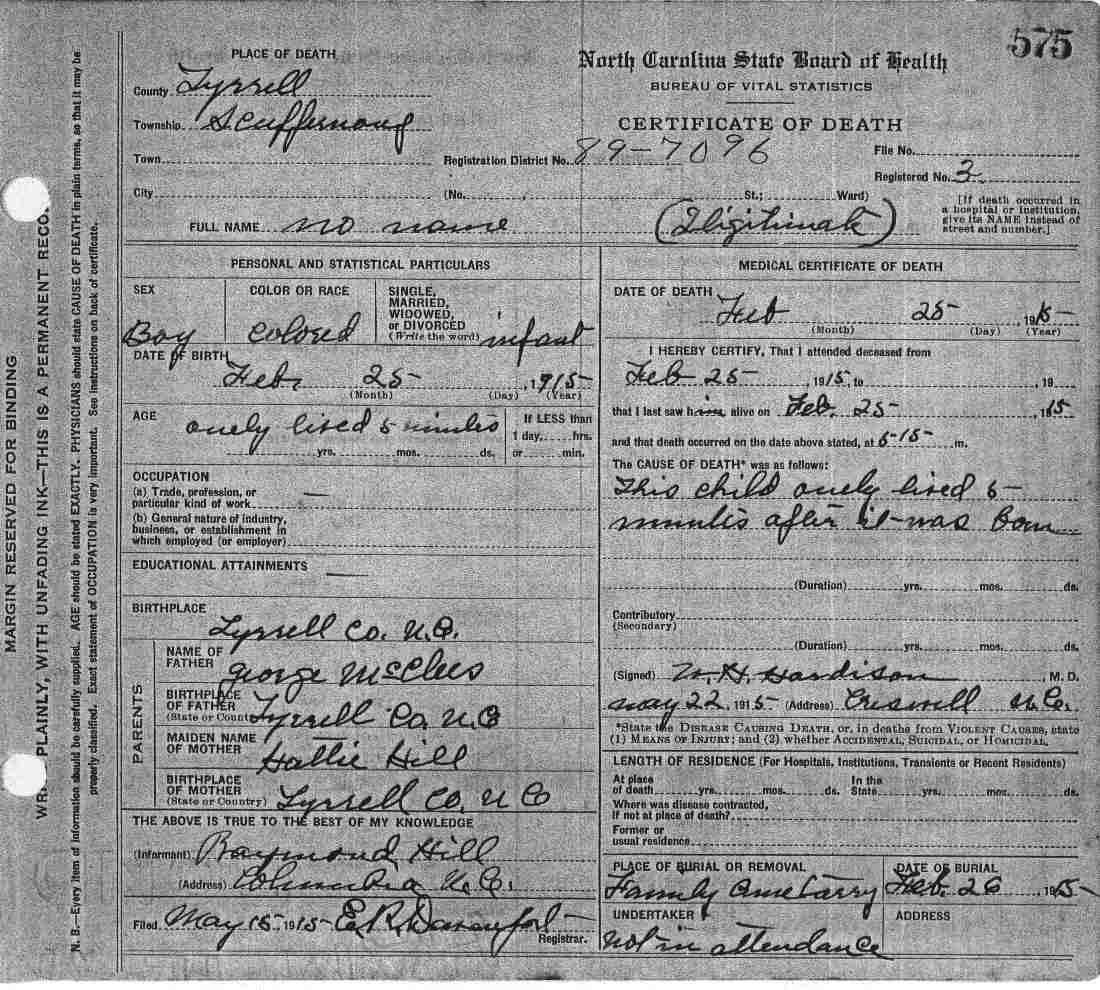 575
PLACE OF DEATH
North Carolina State Board of Health
BUREAU OF VITAL STATISTICS
CERTIFICATE OF DEATH
County Tyrrell
Township Scuppernong
Town
Registration District No. 89-7096
File No.
Registered No. 3
City
(No.
St.;
Ward)
[If death occurred in
a hospital or institution,
give its NAME instead of
street and number.]
FULL NAME no name (Iligitimate)
PERSONAL AND STATISTICAL PARTICULARS
SEX
Boy
COLOR OR RACE
colored
SINGLE,
MARRIED,
WIDOWED,
or DIVORCED
(Write the word) infant
DATE OF BIRTH
Feb. 25 1915
(Month) (Day) (Year)
AGE
onely lived 5 minutes
yrs. mos. ds.
If LESS than
1 day, hrs.
or min.
OCCUPATION
(a) Trade, profession, or
particular kind of work —
(b) General nature of industry,
business, or establishment in
which employed (or employer)
EDUCATIONAL ATTAINMENTS —
BIRTHPLACE
Tyrrell Co. N.C.
PARENTS
NAME OF
FATHER
George McClees
BIRTHPLACE
OF FATHER
(State or Country) Tyrrell Co. N C
MAIDEN NAME
OF MOTHER
Hattie Hill
BIRTHPLACE
OF MOTHER
(State or Country) Tyrrell Co. N C
THE ABOVE IS TRUE TO THE BEST OF MY KNOWLEDGE
(Informant) Raymond Hill
(Address) Columbia N.C.
Filed May 15 1915 E. R. Davenport
Registrar.
MEDICAL CERTIFICATE OF DEATH
DATE OF DEATH
Feb 25 1915
(Month) (Day) (Year)
I HEREBY CERTIFY, That I attended deceased from
Feb 25 1915, to 19
that I last saw him alive on Feb. 25 1915
and that death occurred on the date above stated, at 5-15 m.
The CAUSE OF DEATH* was as follows:
This child onely lived 5
minutes after it was born
(Duration) yrs. mos. ds.
Contributory
(Secondary)
(Duration) yrs. mos. ds.
(Signed) W. H. Hardison, M. D.
May 22, 1915 (Address) Creswell N.C.
*State the DISEASE CAUSING DEATH, or, in deaths from VIOLENT CAUSES, state
(1) MEANS OF INJURY; and (2) whether ACCIDENTAL, SUICIDAL, or HOMICIDAL.
LENGTH OF RESIDENCE (For Hospitals, Institutions, Transients or Recent Residents)
At place
of death yrs. mos. ds.
In the
State yrs. mos. ds.
Where was disease contracted,
if not at place of death?
Former or
usual residence
PLACE OF BURIAL OR REMOVAL
Family
DATE OF BURIAL
Feb. 26, 1915
UNDERTAKER
not in attendance
ADDRESS
MARGIN RESERVED FOR BINDING
PLAINLY, WITH UNFADING INK—THIS IS A PERMANENT RECO
N. B.—Every item of information should be carefully supplied. AGE should be stated EXACTLY. PHYSICIANS should state CAUSE OF DEATH in plain terms, so that it may be
properly classified. Exact statement of OCCUPATION is very important. See instructions on back of certificate.